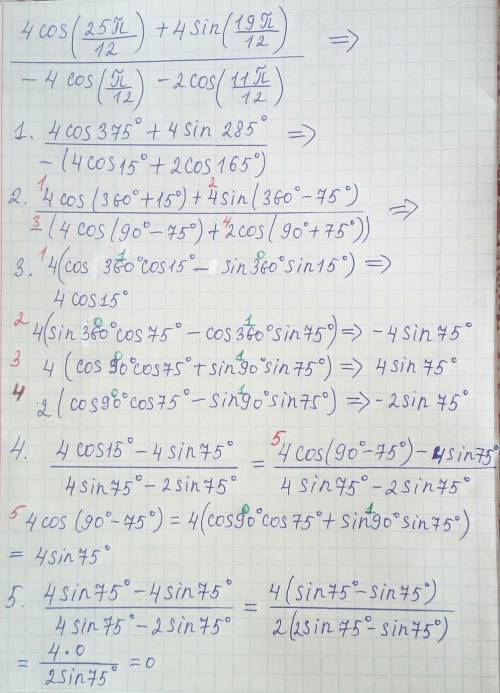 4cos(25π/12) + 4sin(19π/12) =>
- 4cos(π/12) - 2cos(11π/12)
1. 4cos375° + 4sin285° =>
-(4cos15° + 2cos165°)
2. 1 4cos(360°+15°) + 2 4sin(360°-75°) =>
3 -(4cos(90°-75°) + 4 2cos(90°+75°))
3. 1 4(cos360° 1 cos15° - sin360° 0 sin15°) =>
4cos15°
2 4(sin360° 0 cos75° - cos360° 1 sin75°) => -4sin75°
3 4(cos90° 0 cos75° + sin90° 1 sin75°) => 4sin75°
4 2(cos90° 0 cos75° - sin90° 1 sin75°) => -2sin75°
4. 4cos15° - 4sin75° / 4sin75° - 2sin75° = 5 4cos(90°-75°) - 4sin75° / 4sin75° - 2sin75°
5 4cos(90°-75°) = 4(cos90° 0 cos75° + sin90° 1 sin75°)
= 4sin75°
5. 4sin75° - 4sin75° / 4sin75° - 2sin75° = 4(sin75° - sin75°) / 2(2sin75° - sin75°)
= 4·0 / 2sin75° = 0